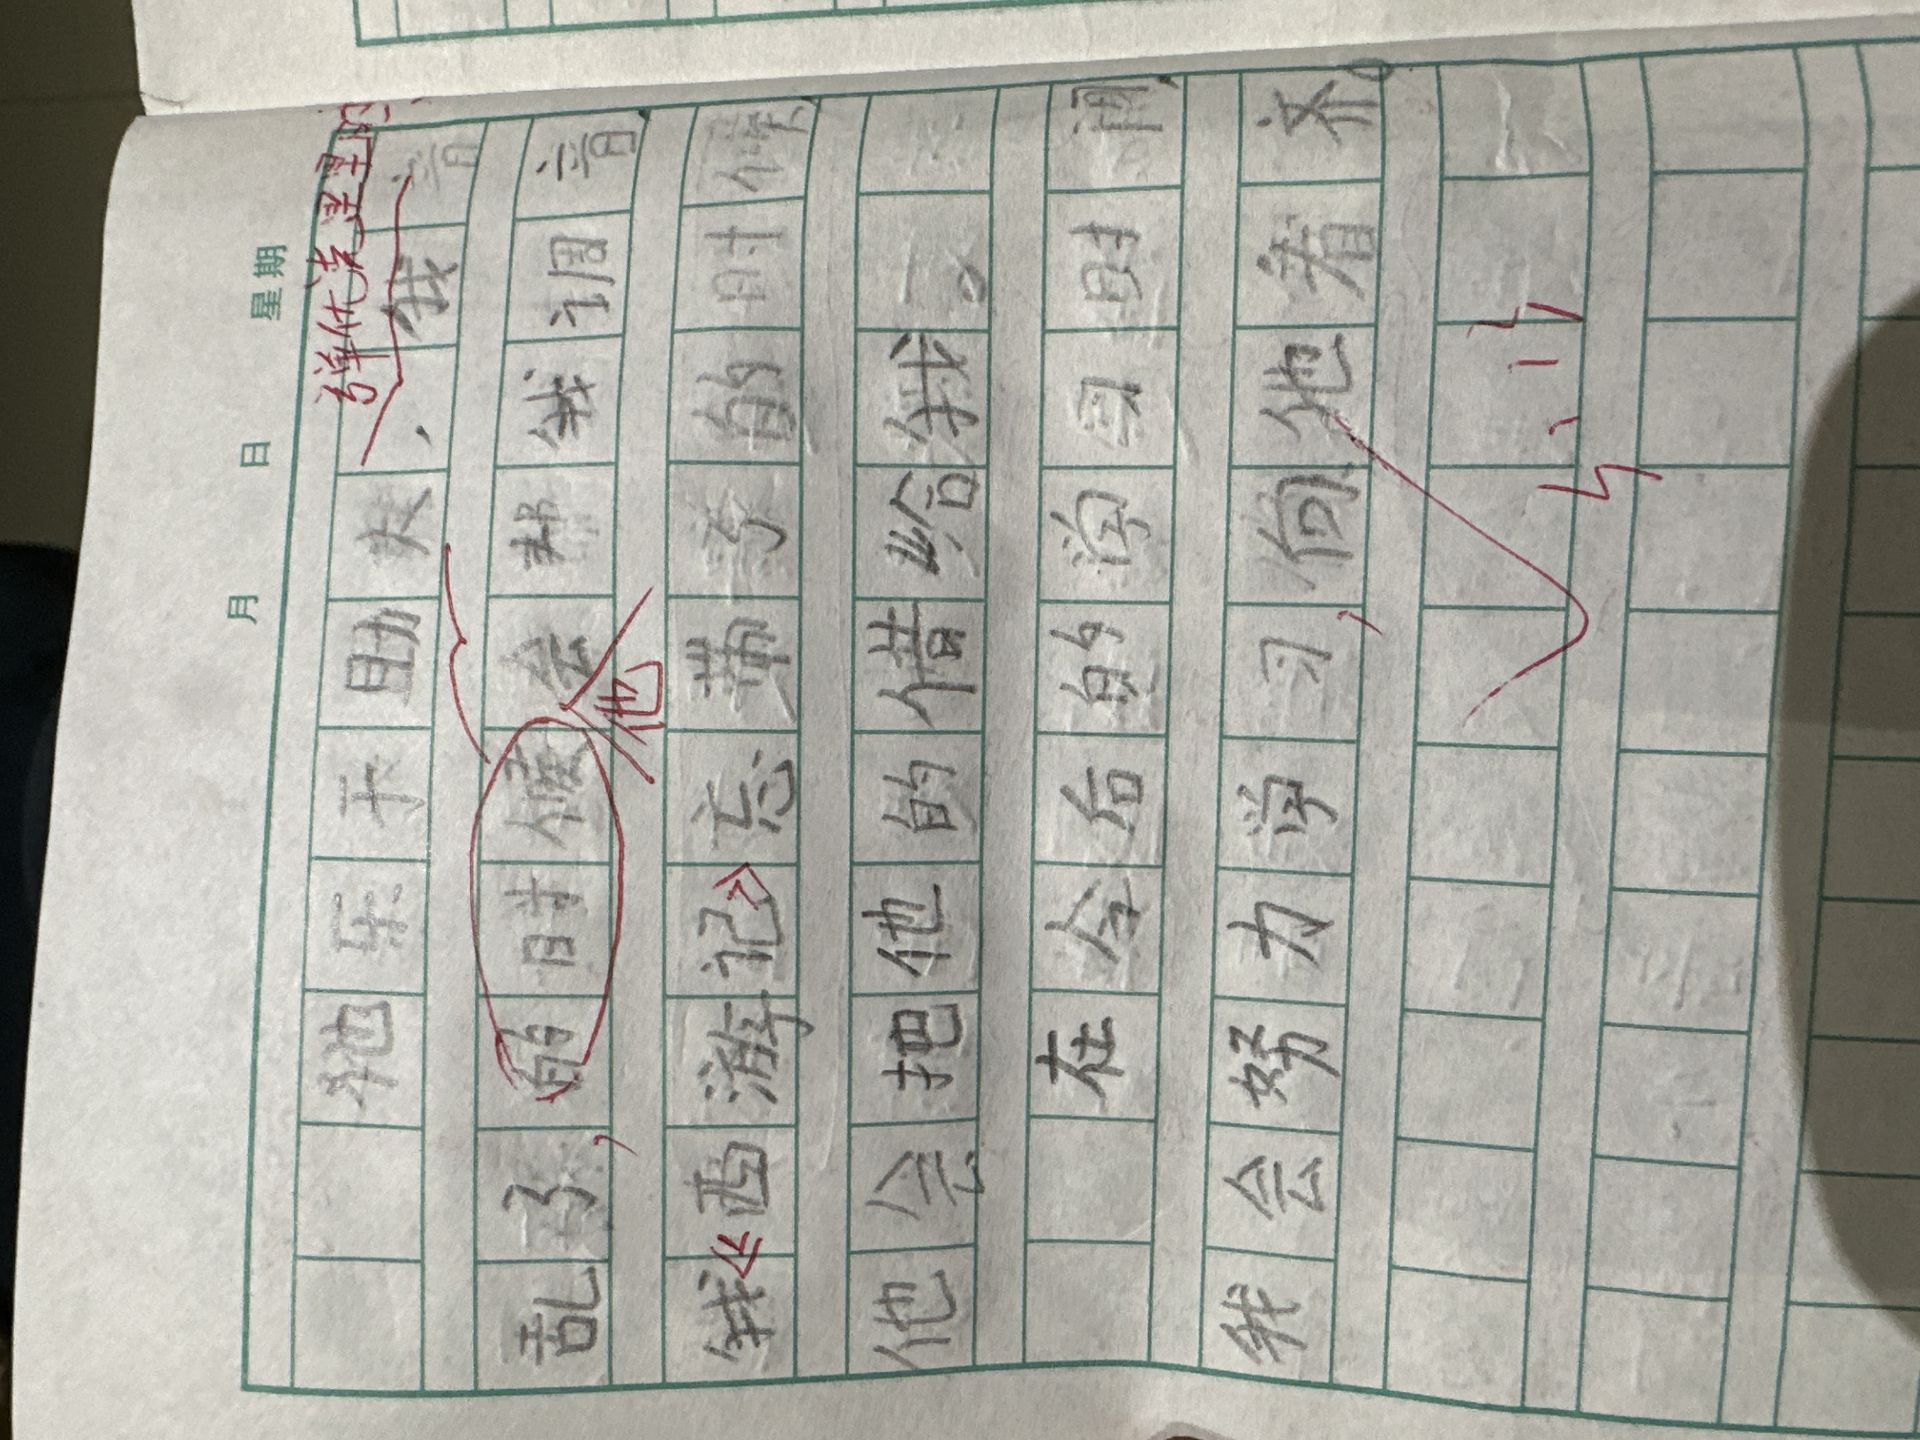 月 日 星期
弹优克里里
他乐于助人,我音
乱了的时候会帮我调音,
他
我《西游记》忘带了的时候,
他会把他的借给我。
在今后的学习时间,
我会努力学习,向他看齐。